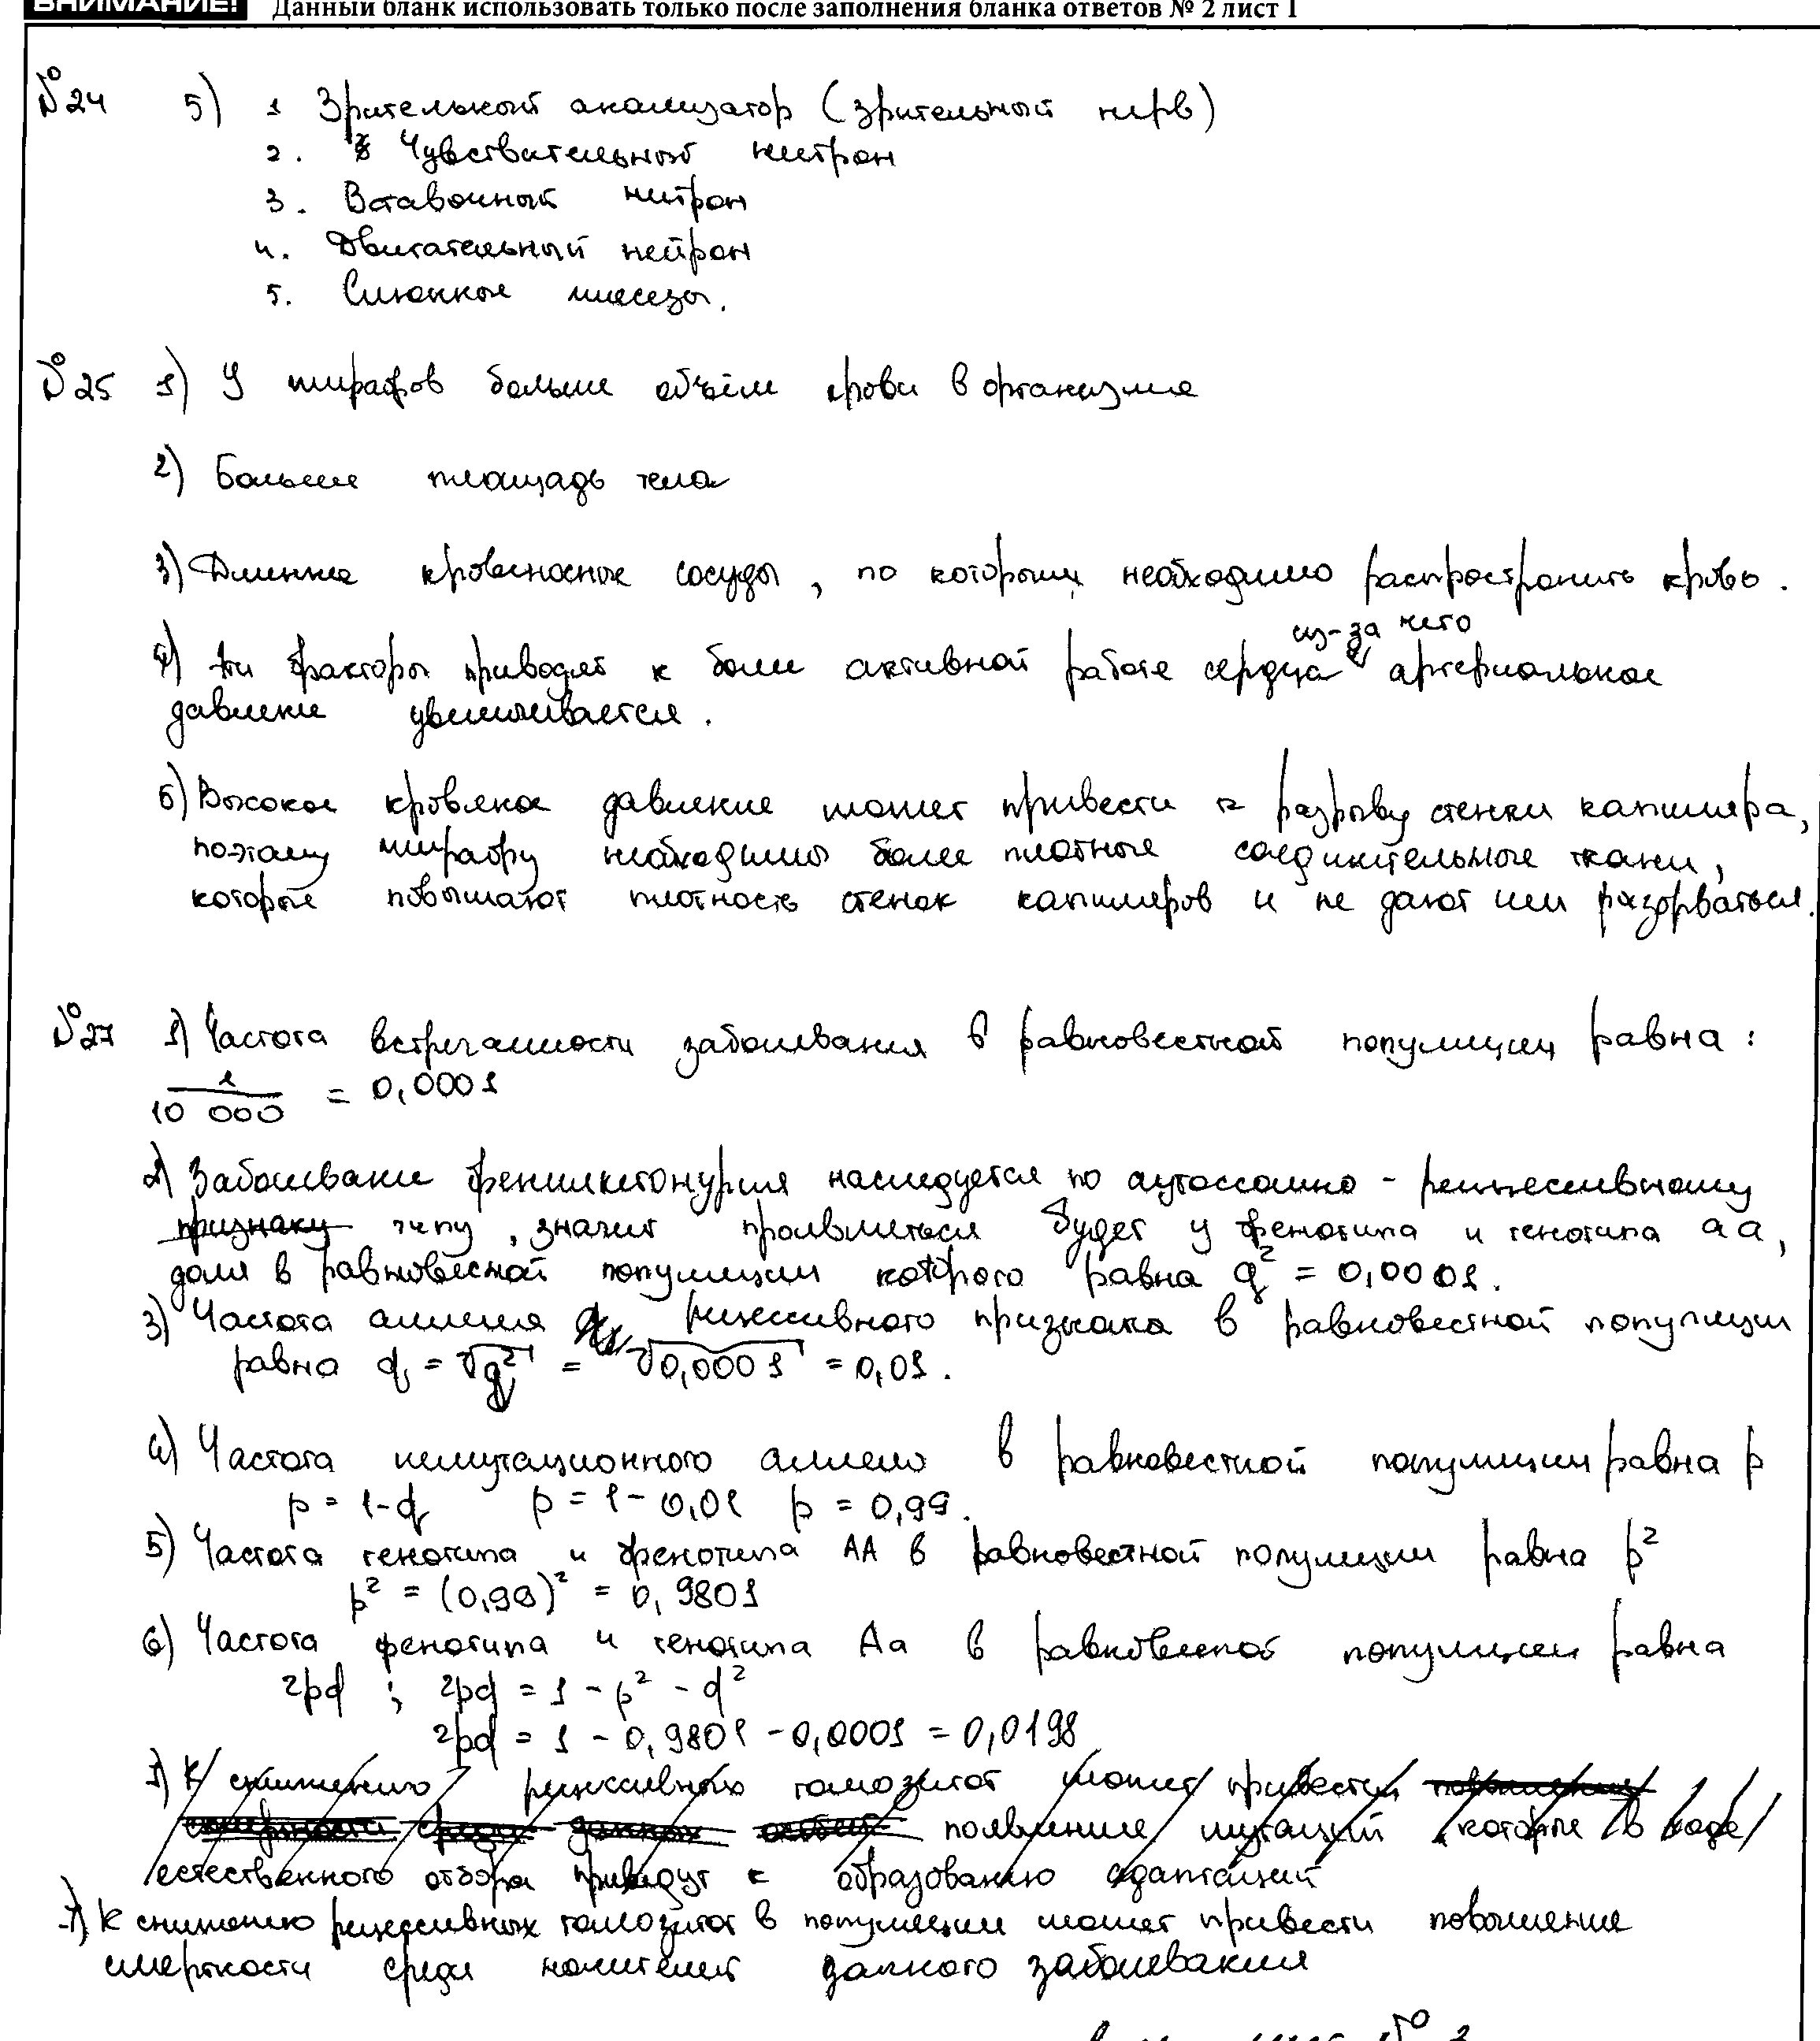 ВНИМАНИЕ! Данный бланк использовать только после заполнения бланка ответов № 2 лист 1
№24 5) 1 Зрительный анализатор (зрительный нерв)
2. Чувствительный нейтрон
3. Вставочный нейрон
4. Двигательный нейрон
5. Слюнные железы.
№25 1) У жирафов больше объём крови в организме
2) Больше площадь тела
3) Длиннее кровеносные сосуды, по которым необходимо распространить кровь.
из-за чего
4) Эти факторы приводят к более активной работе сердца артериальное
давление увеличивается.
5) Высокое кровяное давление может привести к разрыву стенки капилляра,
поэтому жирафу необходимы более плотные соединительные ткани,
которые повышают плотность стенок капилляров и не дают им разорваться.
№27 1) Частота встречаемости заболевания в равновестной популяции равна:
1/10 000 = 0,0001
2) Заболевание фенилкетонурия наследуется по аутоссомно - рецессивному
признаку типу, значит проявляться будет у фенотипа и генотипа aa,
доля в равновесной популяции которого равна q² = 0,0001.
3) Частота аллеля рецессивного признака в равновестной популяции
равна q = √q² = √0,0001 = 0,01.
4) Частота немутационного аллеля в равновестной популяции равна p
p = 1-q p = 1-0,01 p = 0,99.
5) Частота генотипа и фенотипа AA в равновестной популяции равна p²
p² = (0,99)² = 0,9801
6) Частота фенотипа и генотипа Aa в равновесной популяции равна
2pq ; 2pq = 1 - p² - q²
2pq = 1 - 0,9801 - 0,0001 = 0,0198
7) К снижению рецессивных гомозигот может привести
появление мутаций, которые в ходе
естественного отбора приведут к образованию адаптаций
7) К снижению рецессивных гомозигот в популяции может привести повышение
смертности среди носителей данного заболевания